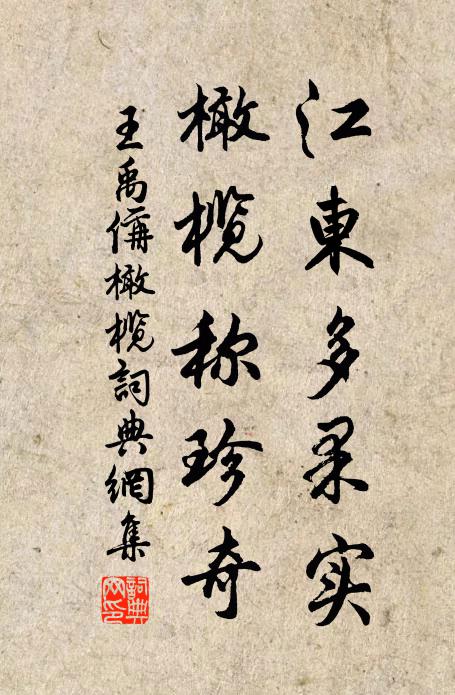 江東多果实
橄榄称珍奇
王禹偁橄榄詞典網集
詞典网印